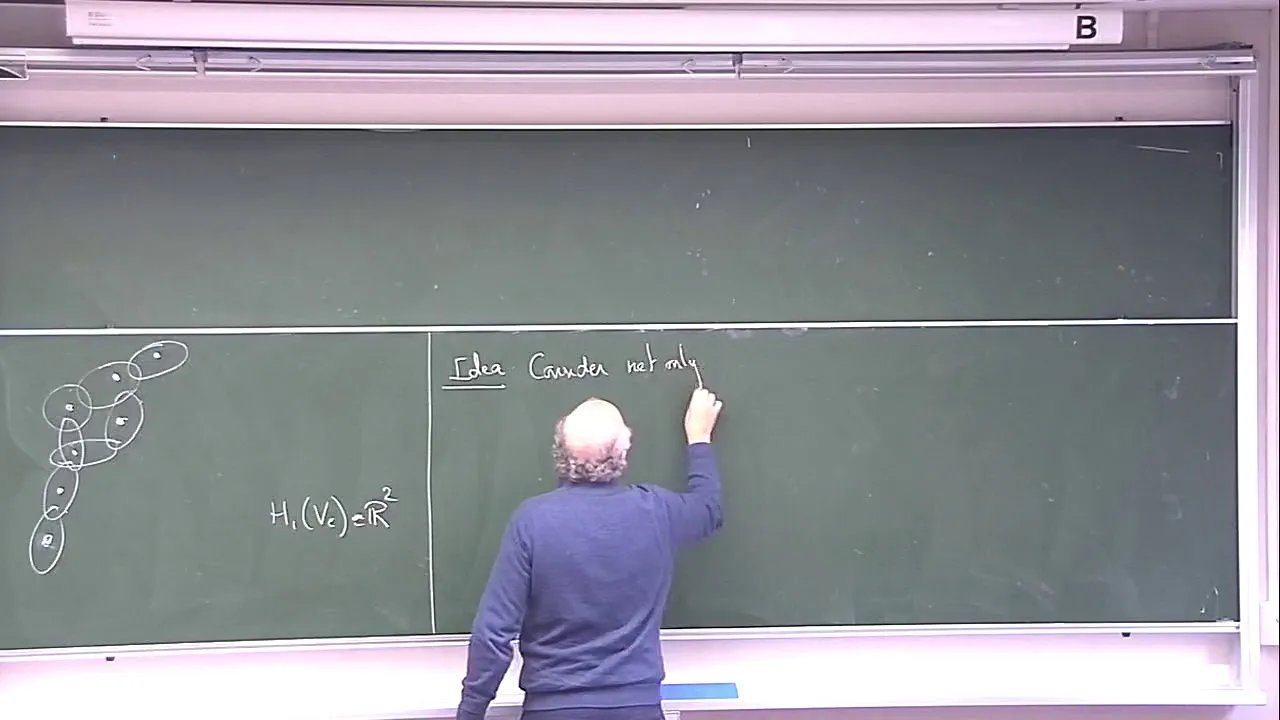 B
H₁(Vε) = ℝ²
Idea Consider not only